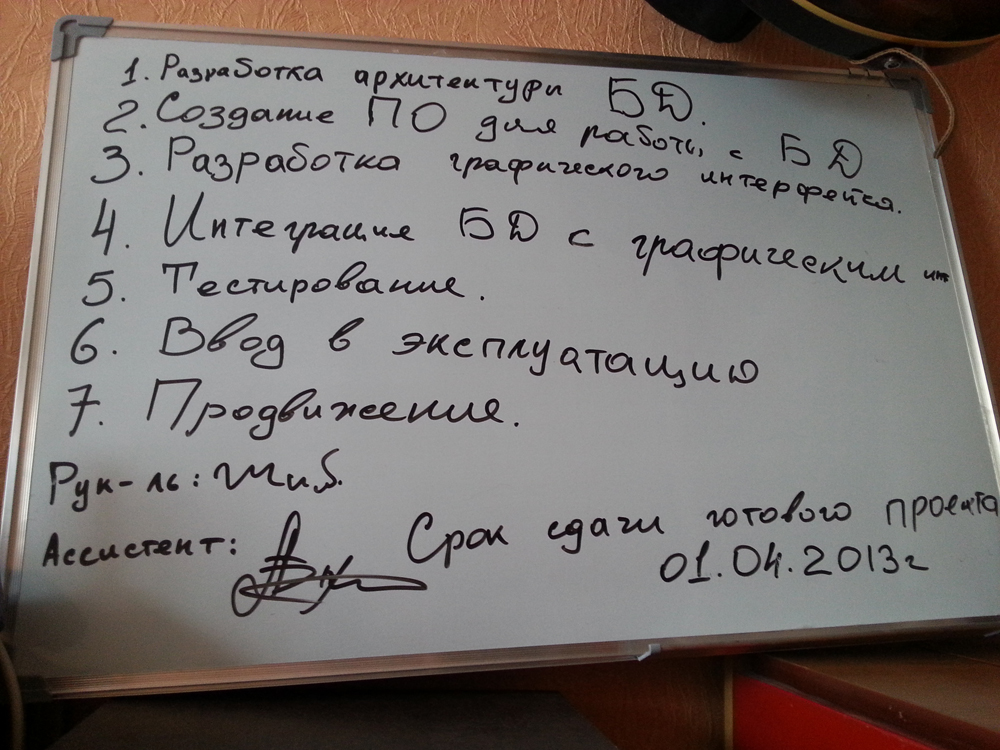 1. Разработка архитектуры БД.
2. Создание ПО для работы с БД
3. Разработка графического интерфейса.
4. Интеграция БД с графическим инт
5. Тестирование.
6. Ввод в эксплуатацию
7. Продвижение.
Рук-ль:
Ассистент:
Срок сдачи готового проекта
01.04.2013г